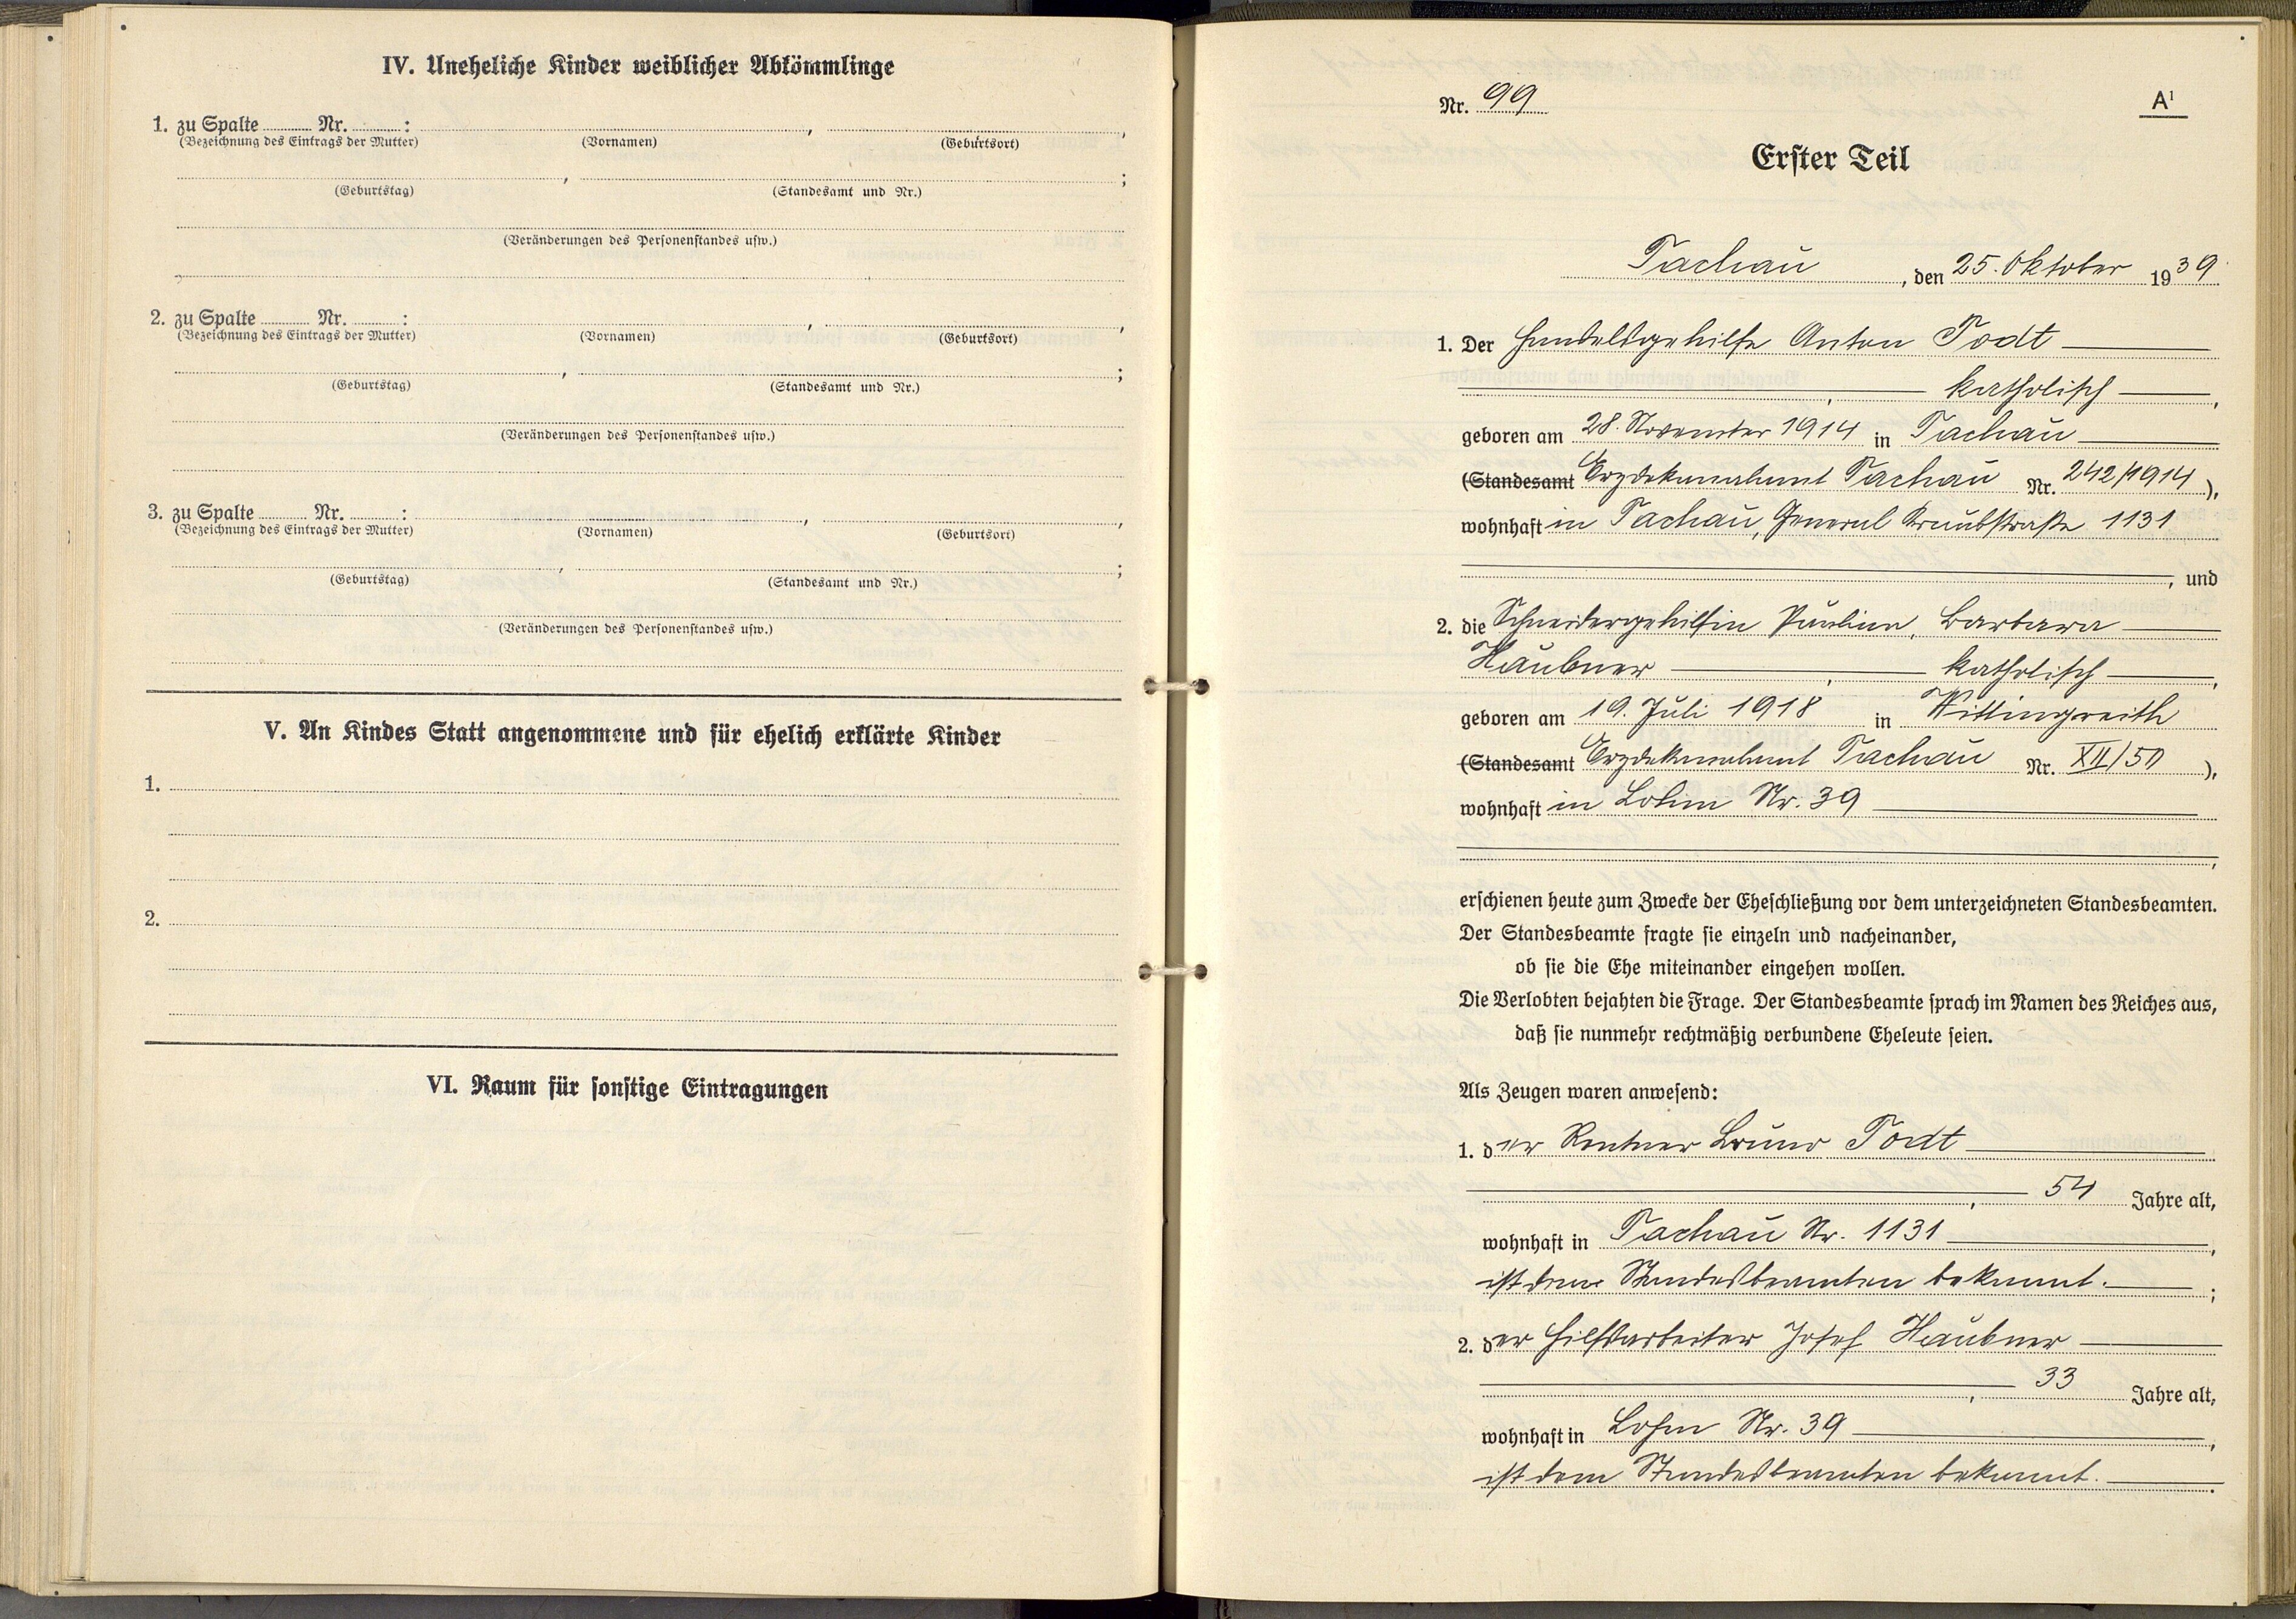 IV. Uneheliche Kinder weiblicher Abkömmlinge
1. zu Spalte Nr. : , ,
(Bezeichnung des Eintrags der Mutter) (Vornamen) (Geburtsort)
, ;
(Geburtstag) (Standesamt und Nr.)
(Veränderungen des Personenstandes usw.)
2. zu Spalte Nr. : , ,
(Bezeichnung des Eintrags der Mutter) (Vornamen) (Geburtsort)
, ;
(Geburtstag) (Standesamt und Nr.)
(Veränderungen des Personenstandes usw.)
3. zu Spalte Nr. : , ,
(Bezeichnung des Eintrags der Mutter) (Vornamen) (Geburtsort)
, ;
(Geburtstag) (Standesamt und Nr.)
(Veränderungen des Personenstandes usw.)
V. An Kindes Statt angenommene und für ehelich erklärte Kinder
1.
2.
VI. Raum für sonstige Eintragungen
Nr. 99 A¹
Erster Teil
Tachau, den 25. Oktober 1939
1. Der Handelsgehilfe Anton Todt
, katholisch,
geboren am 28. November 1914 in Tachau
(Standesamt Erzdekanalamt Tachau Nr. 242/1914),
wohnhaft in Tachau, General Kraußstraße 1131
, und
2. die Schneidergehilfin Pauline, Barbara
Häubner, katholisch,
geboren am 19. Juli 1918 in Wittingreith
(Standesamt Erzdekanalamt Tachau Nr. XII/50),
wohnhaft in Lohm Nr. 39
,
erschienen heute zum Zwecke der Eheschließung vor dem unterzeichneten Standesbeamten.
Der Standesbeamte fragte sie einzeln und nacheinander,
ob sie die Ehe miteinander eingehen wollen.
Die Verlobten bejahten die Frage. Der Standesbeamte sprach im Namen des Reiches aus,
daß sie nunmehr rechtmäßig verbundene Eheleute seien.
Als Zeugen waren anwesend:
1. der Rentner Bruno Todt
, 54 Jahre alt,
wohnhaft in Tachau Nr. 1131,
ist dem Standesbeamten bekannt. ;
2. der Hilfsarbeiter Josef Häubner
, 33 Jahre alt,
wohnhaft in Lohm Nr. 39,
ist dem Standesbeamten bekannt.